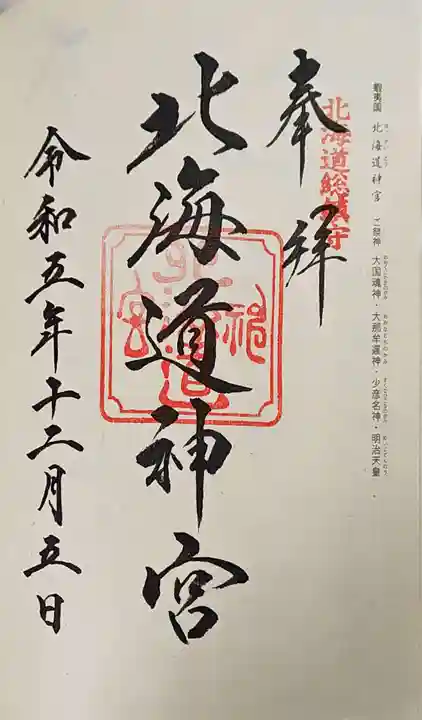 蝦夷国 北海道神宮 ご祭神 大国魂神・大那牟遅神・少彦名神・明治天皇
奉拝
北海道総鎮守
北海道神宮
令和五年十二月五日